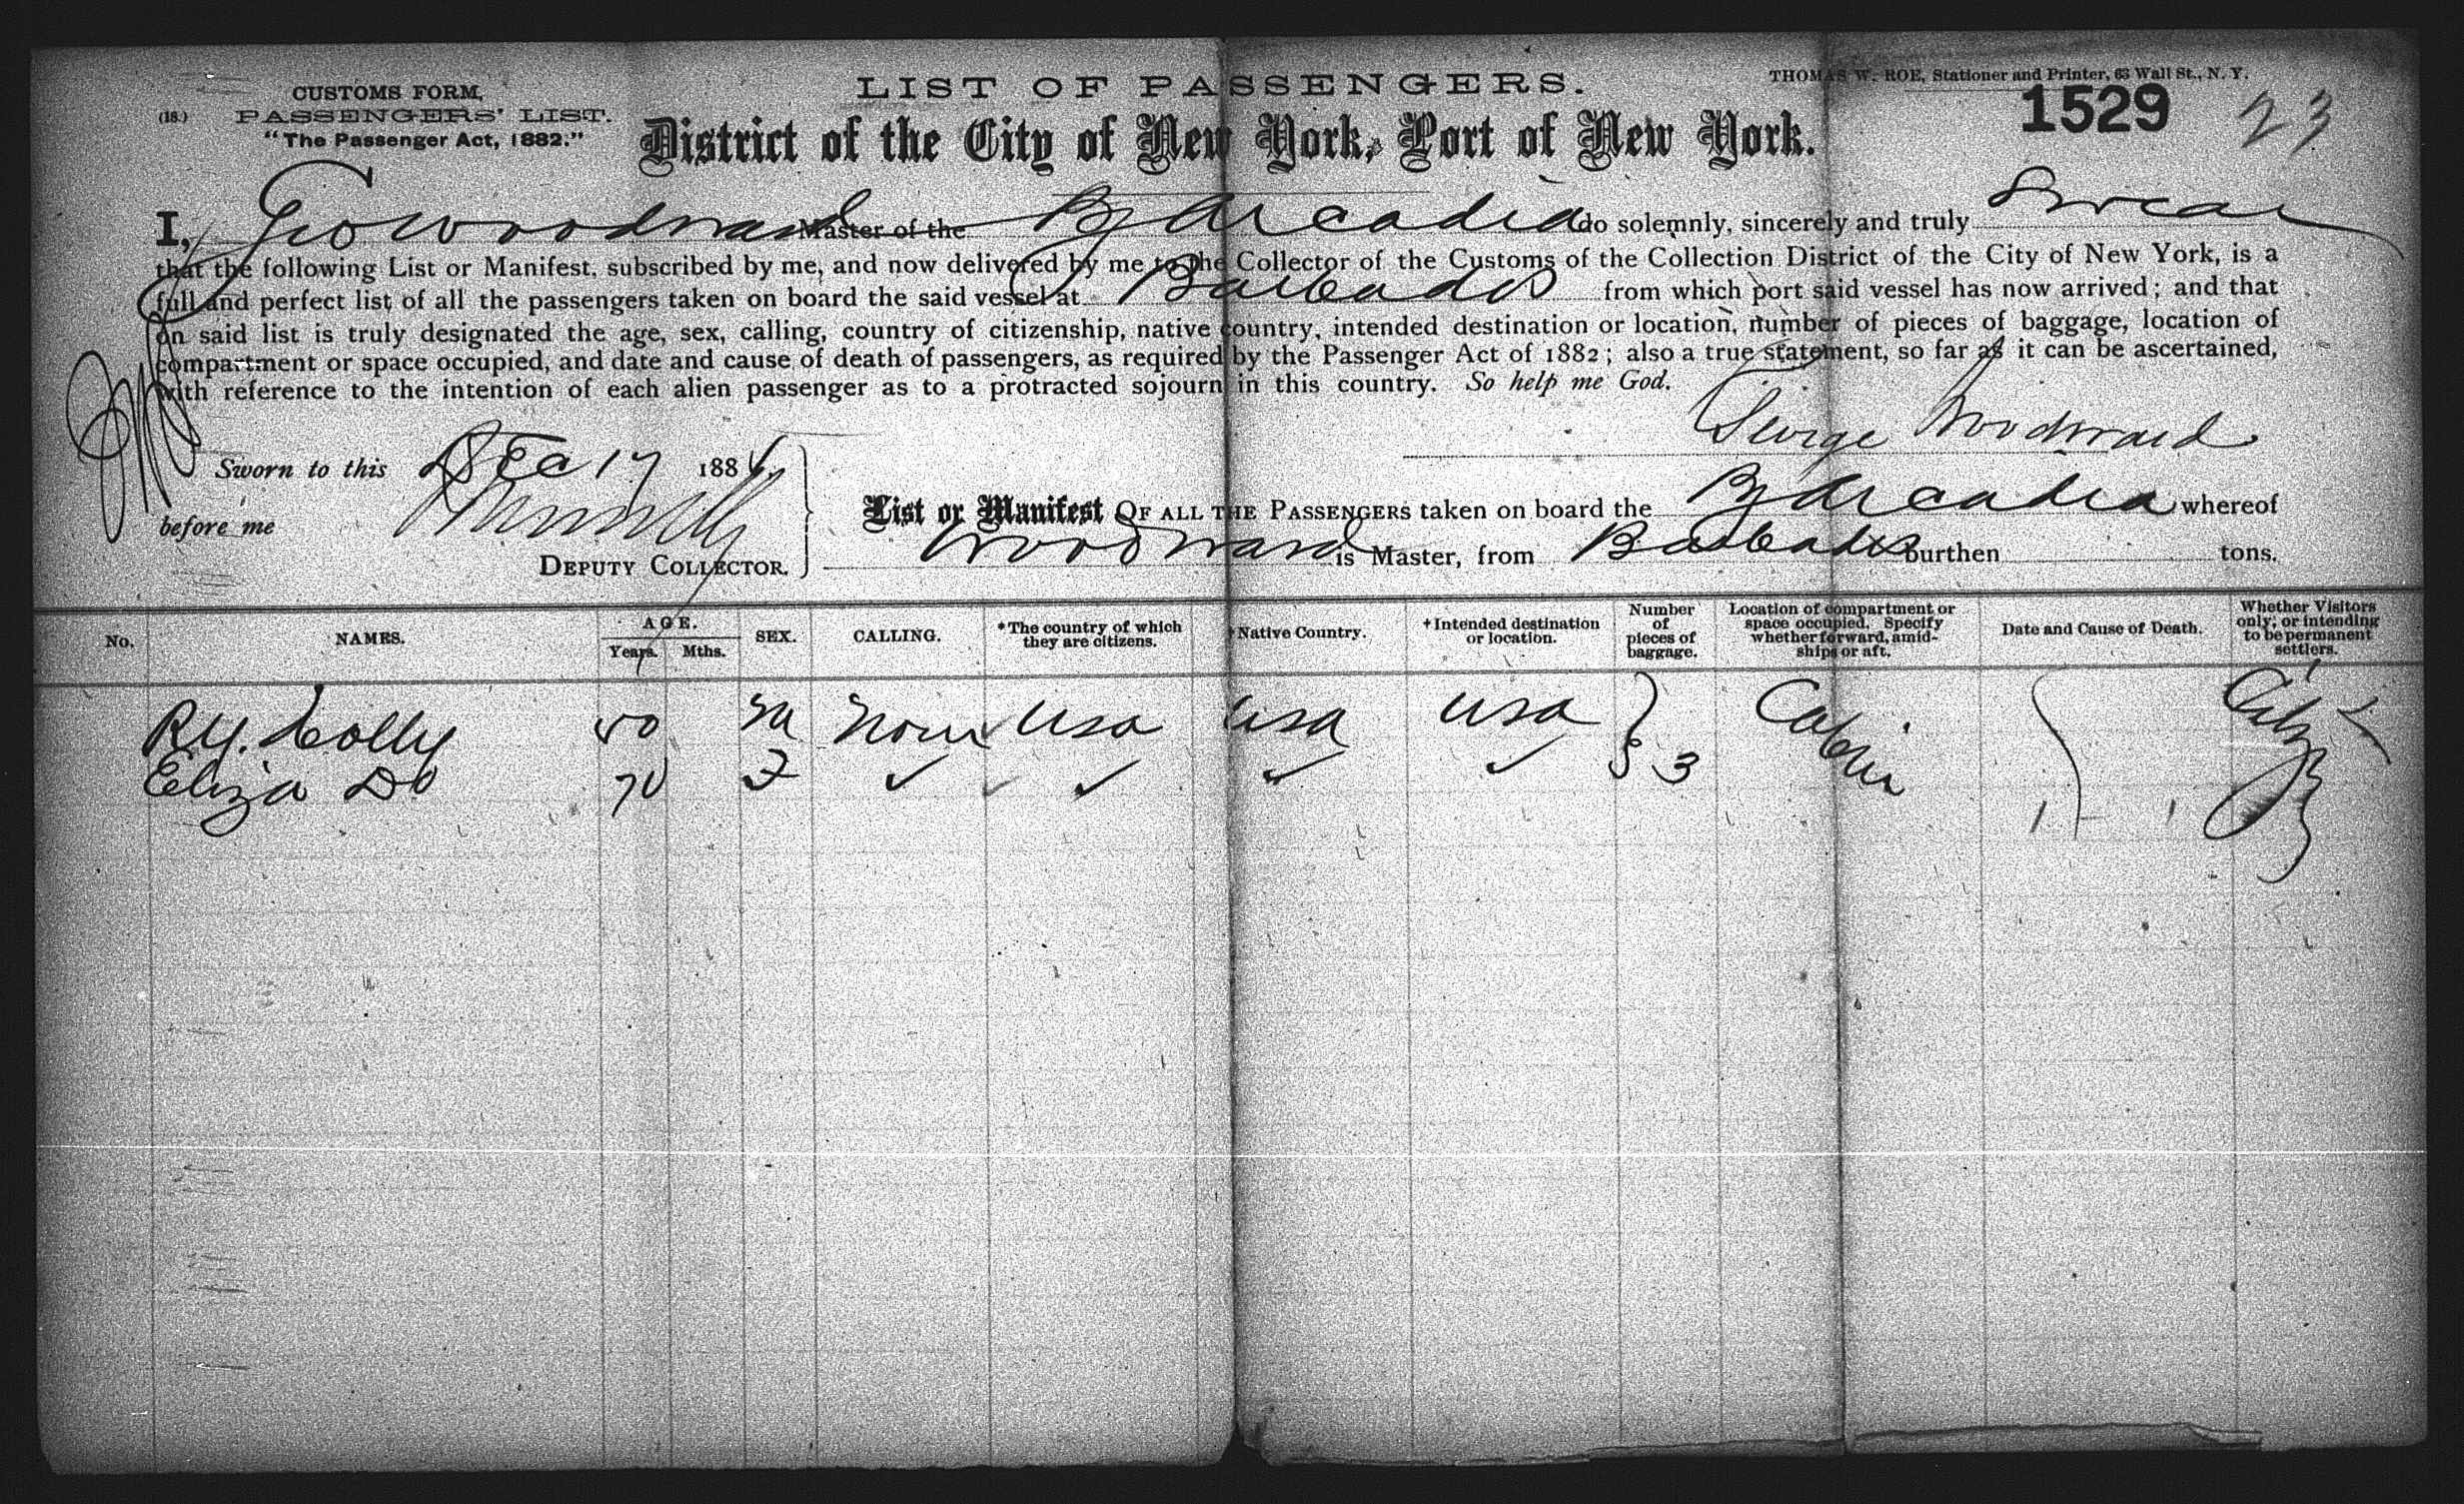 CUSTOMS FORM,
(18.) PASSENGERS' LIST.
"The Passenger Act, 1882."
LIST OF PASSENGERS.
THOMAS W. ROE, Stationer and Printer, 63 Wall St., N. Y.
1529 23
District of the City of New York, Port of New York.
I, Geo Woodward Master of the Bg Arcadia do solemnly, sincerely and truly Swear
that the following List or Manifest, subscribed by me, and now delivered by me to the Collector of the Customs of the Collection District of the City of New York, is a
full and perfect list of all the passengers taken on board the said vessel at Barbados from which port said vessel has now arrived; and that
on said list is truly designated the age, sex, calling, country of citizenship, native country, intended destination or location, number of pieces of baggage, location of
compartment or space occupied, and date and cause of death of passengers, as required by the Passenger Act of 1882; also a true statement, so far as it can be ascertained,
with reference to the intention of each alien passenger as to a protracted sojourn in this country. So help me God.
George Woodward
Sworn to this Dec 17 1886
before me
DEPUTY COLLECTOR.
List or Manifest OF ALL THE PASSENGERS taken on board the Bg Arcadia whereof
Woodward is Master, from Barbados Burthen tons.
No. NAMES. AGE. Years. Mths. SEX. CALLING. *The country of which they are citizens. Native Country. +Intended destination or location. Number of pieces of baggage. Location of compartment or space occupied. Specify whether forward, amidships or aft. Date and Cause of Death. Whether Visitors only; or intending to be permanent settlers.
R.Y. Colly 50 M None USA USA USA Cabin
Eliza Do 70 F ✓ ✓ ✓ ✓ 3